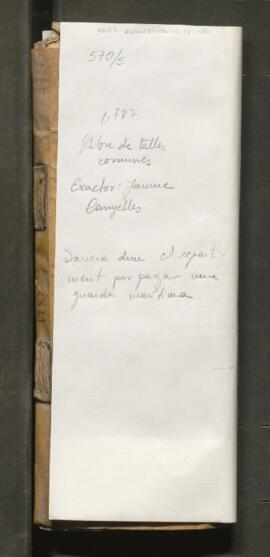 570/5
1.787
Llibre de talles
comunes
Exactor: Jaume
Canyelles
Darrera duu el repart-
ment per pagar una
guarda marítima
1787